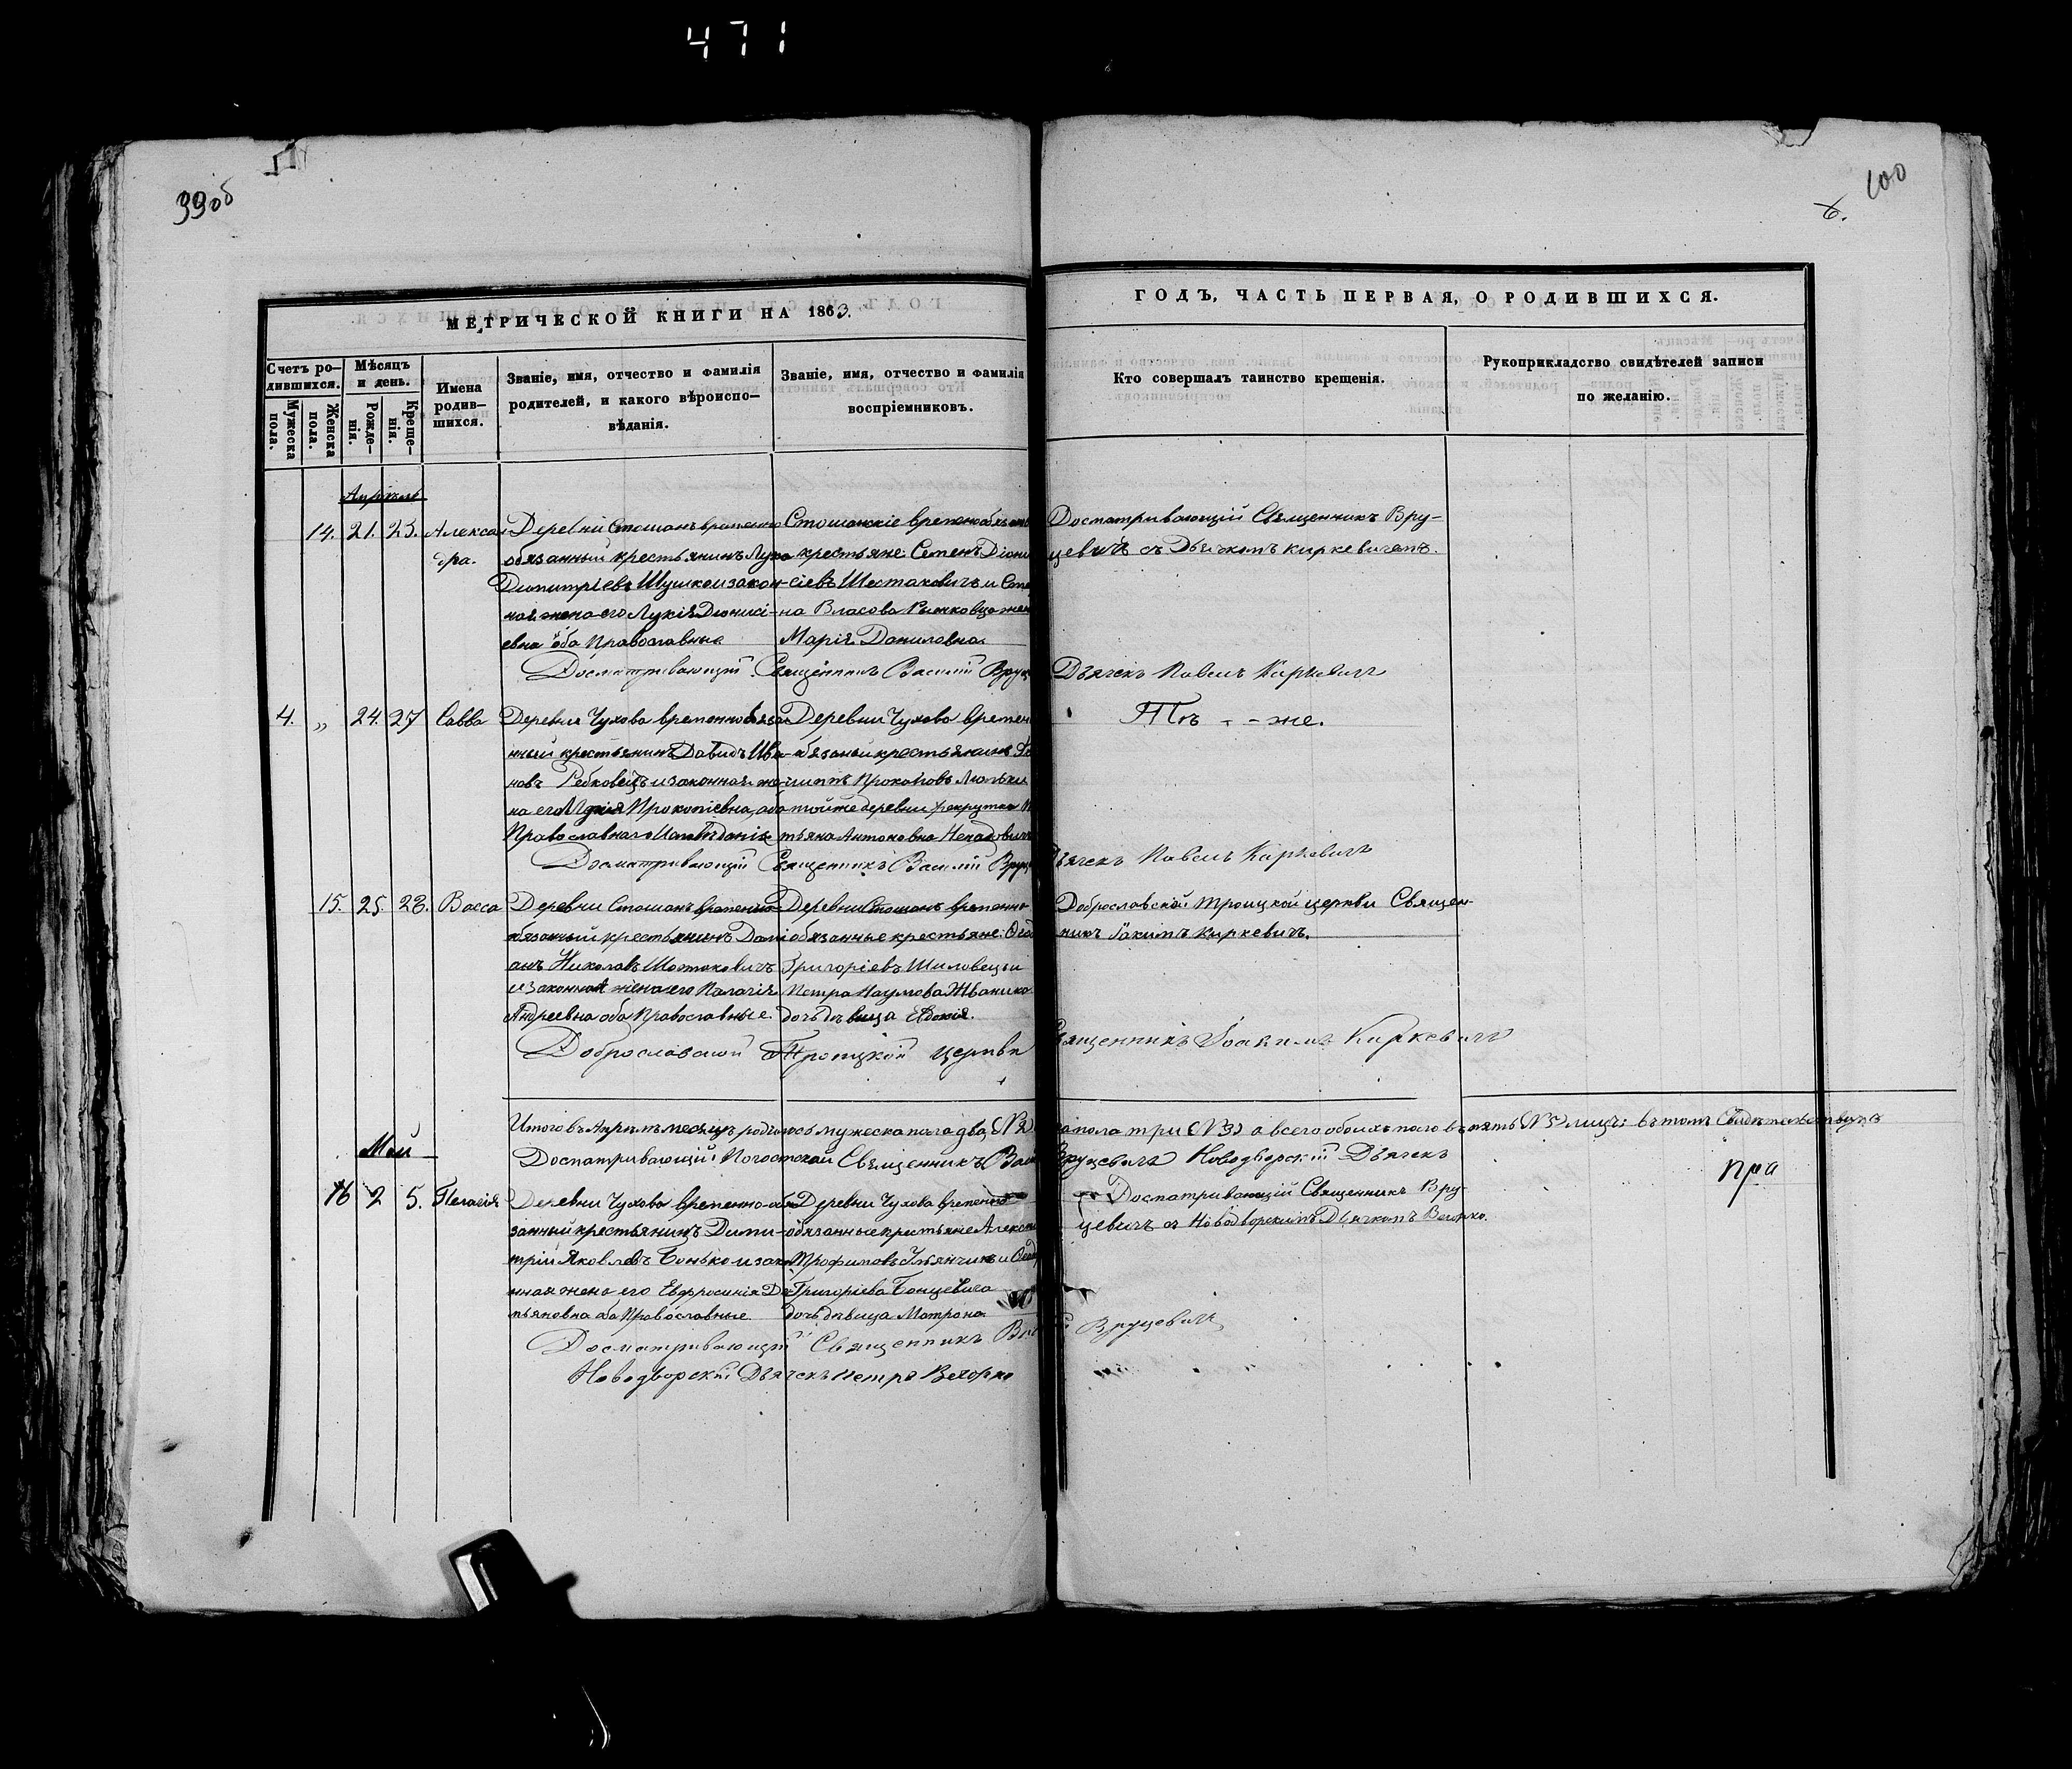 471
99об
100
6.
МЕТРИЧЕСКОЙ КНИГИ НА 1863.
ГОДЪ, ЧАСТЬ ПЕРВАЯ, О РОДИВШИХСЯ.
Счетъ ро-
дившихся.
Мужеска
пола.
Женска
пола.
Мѣсяцъ
и день.
Рожде-
нія.
Креще-
нія.
Имена
родив-
шихся.
Званіе, имя, отчество и фамилія
родителей, и какого вѣроиспо-
вѣданія.
Званіе, имя, отчество и фамилія
воспріемниковъ.
Кто совершалъ таинство крещенія.
Рукоприкладство свидѣтелей записи
по желанію.
Апрѣль
14. 21. 23.
Алексан-
дра.
Деревни Стошанъ временно
обязанный крестьянинъ Лука
Димитріевъ Шушко и закон-
ная жена его Лукія Діонисі-
евна оба Православные
Стошанскіе временнообязан
крестьяне: Семенъ Діони
сіевъ Шестаковичъ и
на Власова жен
Марія Даниловна.
Досматривающій Священникъ Вру-
цевичъ съ Дьячкомъ Киркевичемъ.
Досматривающій Священникъ Василій Вруц Дьячекъ Павелъ Киркевичъ
4. „ 24. 27
Савва
Деревни Чухова временнообяза-
нный крестьянинъ Давидъ Ива-
новъ Ребковецъ и законная же-
на его Прокопіевна, оба
Православнаго Исповѣданія
Деревни Чухова времен
обязаный крестьянинъ
липпъ Прокоповъ
той же деревни рекрутка
тьяна Антоновна
Тѣ - - же.
Досматривающій Священникъ Василій Вруц Дьячекъ Павелъ Киркевичъ
15. 25. 28.
Васса
Деревни Стошанъ временно-
обязанный крестьянинъ Дамі
анъ Николаевъ Шостаковичъ
и законная жена его Палагія
Андреевна оба Православные.
Деревни Стошанъ временно
обязанные крестьяне: Ѳеод
Григоріевъ Шиловецъ и
Петра Наумова Жванико
дочь дѣвица Евдокія.
Доброславской Троицкой церкви Священ-
никъ Іакимъ Киркевичъ.
Доброславской Троицкой церкви Священникъ Іоакимъ Киркевичъ
Итого въ Апрѣлѣ месяцѣ родилось мужеска пола два, (№2) ка пола три (№3) а всего обоихъ пола пять (№5) лицъ: въ томъ Свидѣтельствуютъ
Досматривающій Погостской Священникъ Вас Вруцевичъ Новодворскій Дьячекъ
Май
16 2 5.
Пелагія
Деревни Чухова временно-обя-
занный крестьянинъ Дими-
трій Яковлевъ Бонько и зако
нная жена его Евфросинія Де
мьяновна оба Православные.
Деревни Чухова временно
обязанные крестьяне Алекс
Трофимовъ Ульянчикъ и Ѳеод
Григоріева Бонцевича
дочь дѣвица Матрона.
Досматривающій Священникъ Вру-
цевичъ съ Новодворскимъ Дьячкомъ Вечорко.
Досматривающій Священникъ Вас Вруцевичъ
Новодворскій Дьячекъ Петръ Вечорко